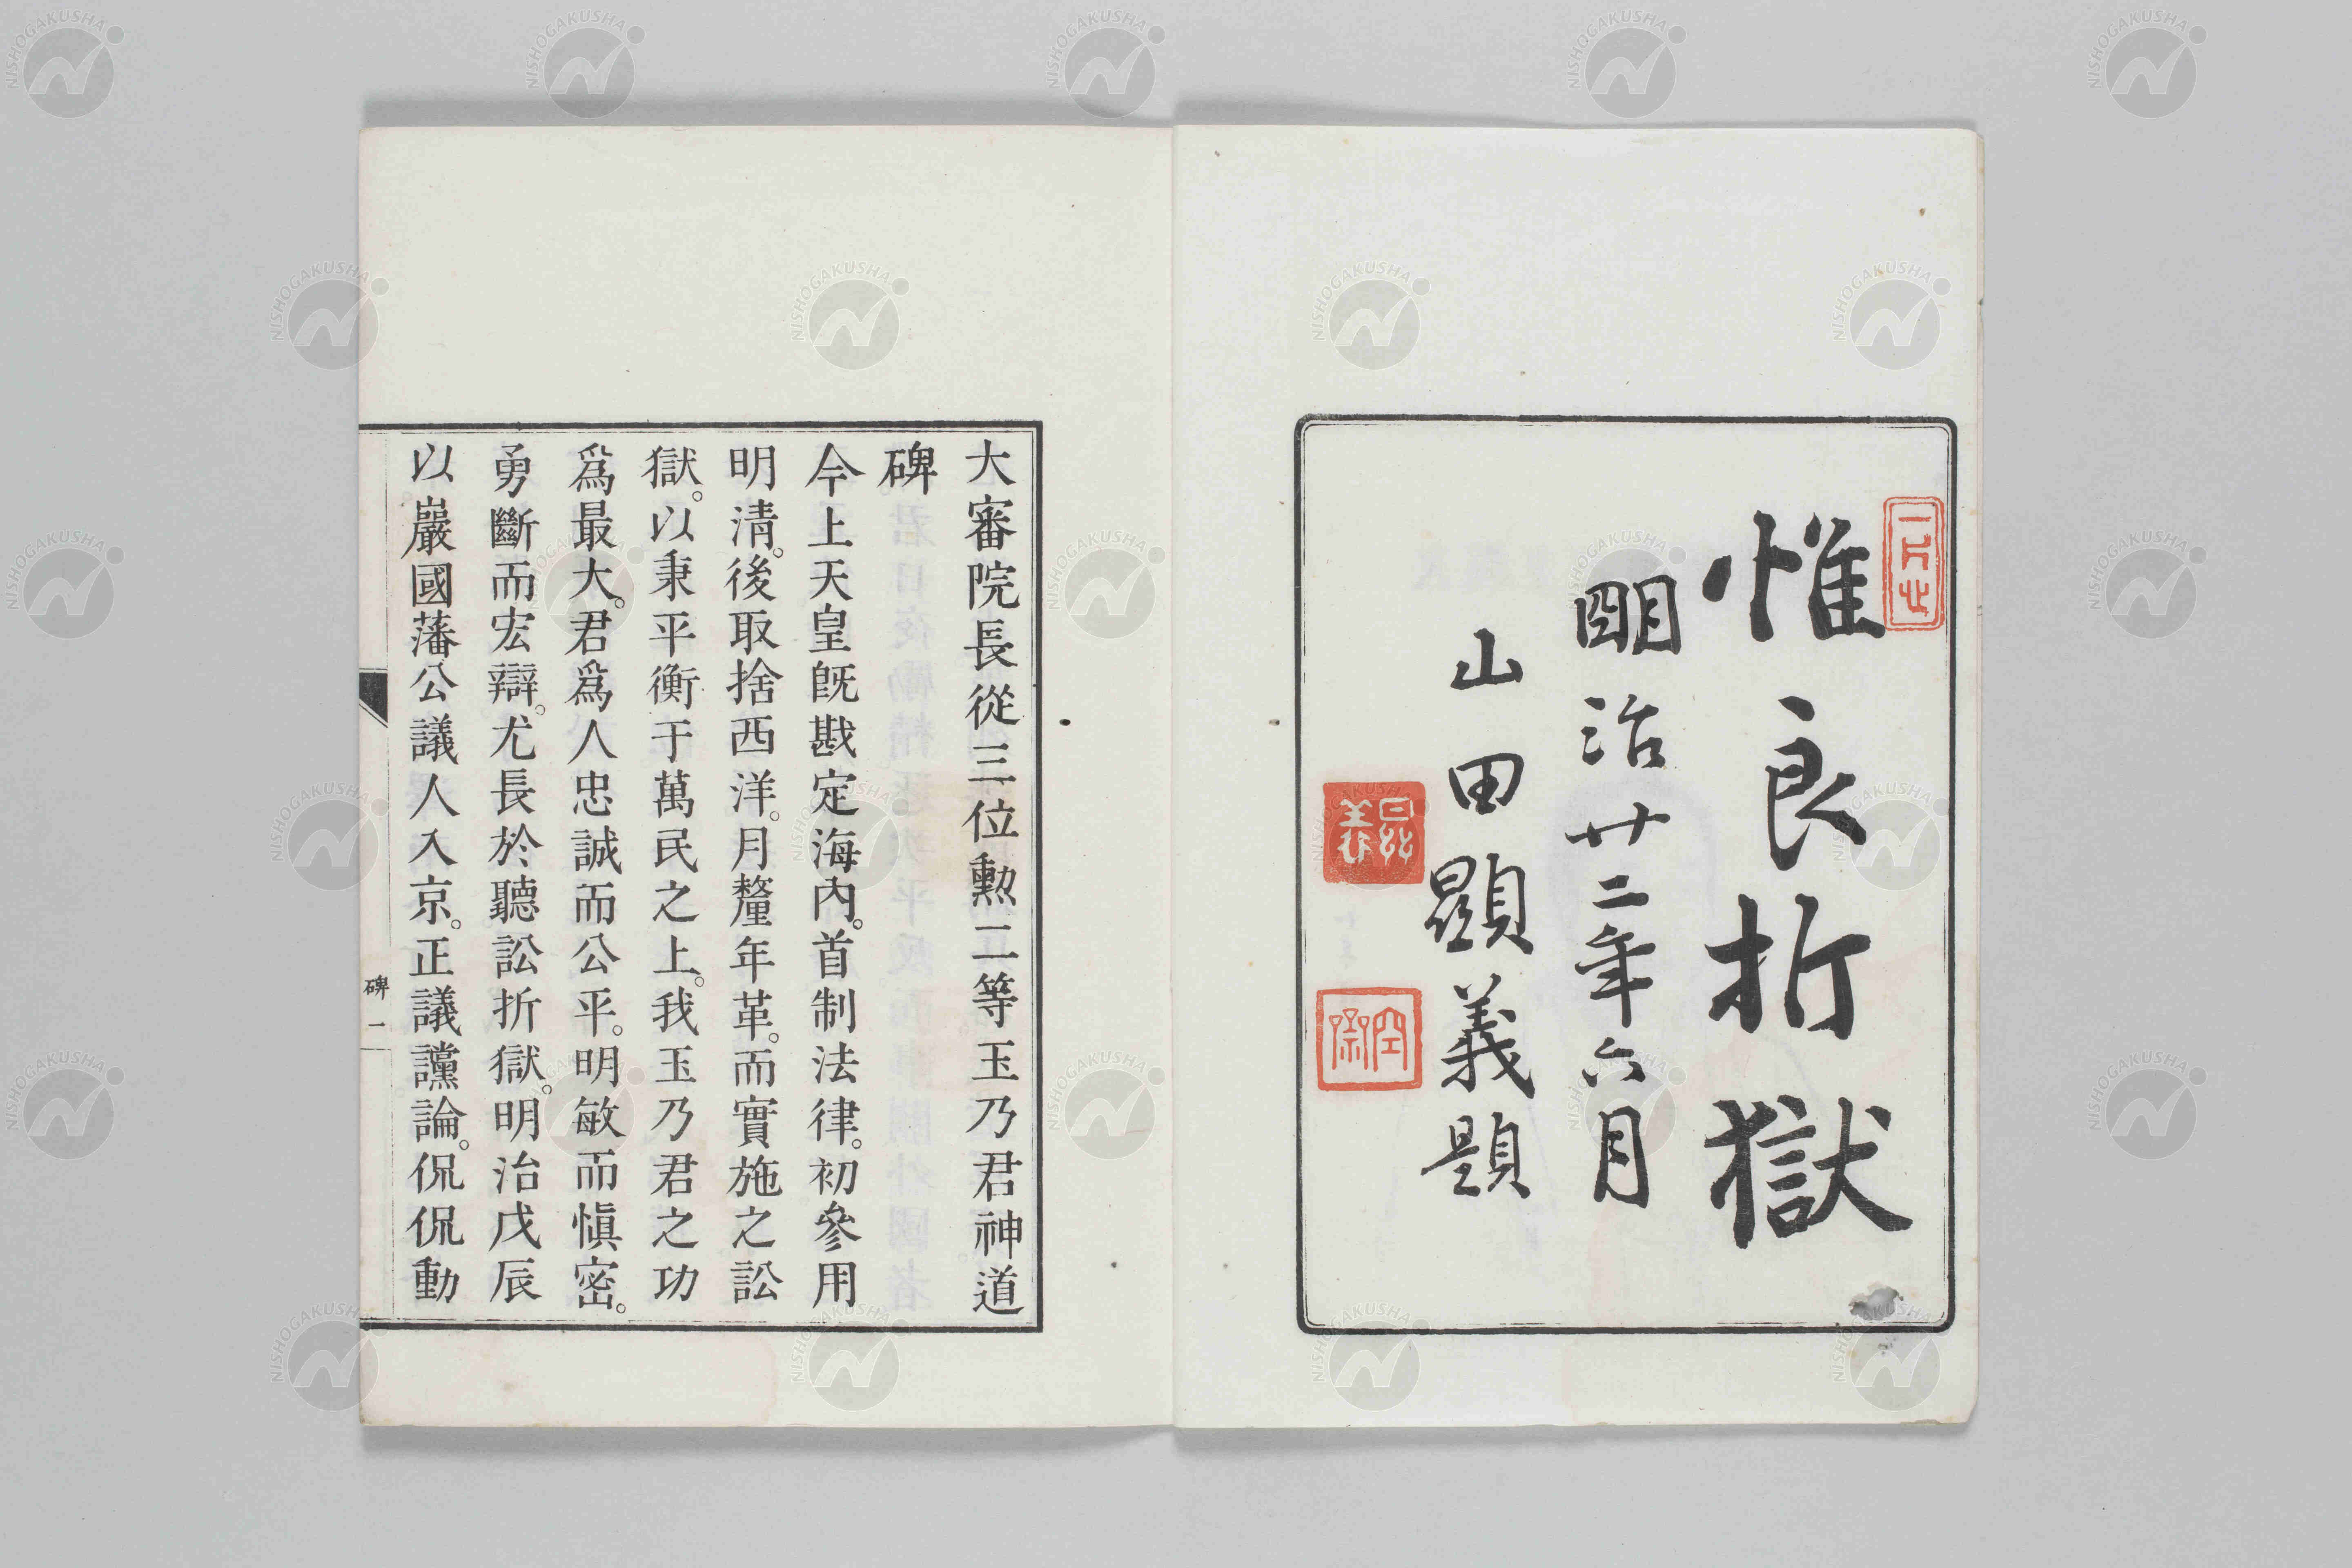 惟良折獄
明治廿二年六月
山田顯義題
顯義
大審院長從三位勲二等玉乃君神道
碑
今上天皇既戡定海內。首制法律。初參用
明清。後取捨西洋。月釐年革。而實施之訟
獄。以秉平衡于萬民之上。我玉乃君之功
爲最大。君爲人忠誠而公平。明敏而愼密。
勇斷而宏辯。尤長於聽訟折獄。明治戊辰
以巖國藩公議人入京。正議讜論。侃侃動
碑 一
NISHOGAKUSHA